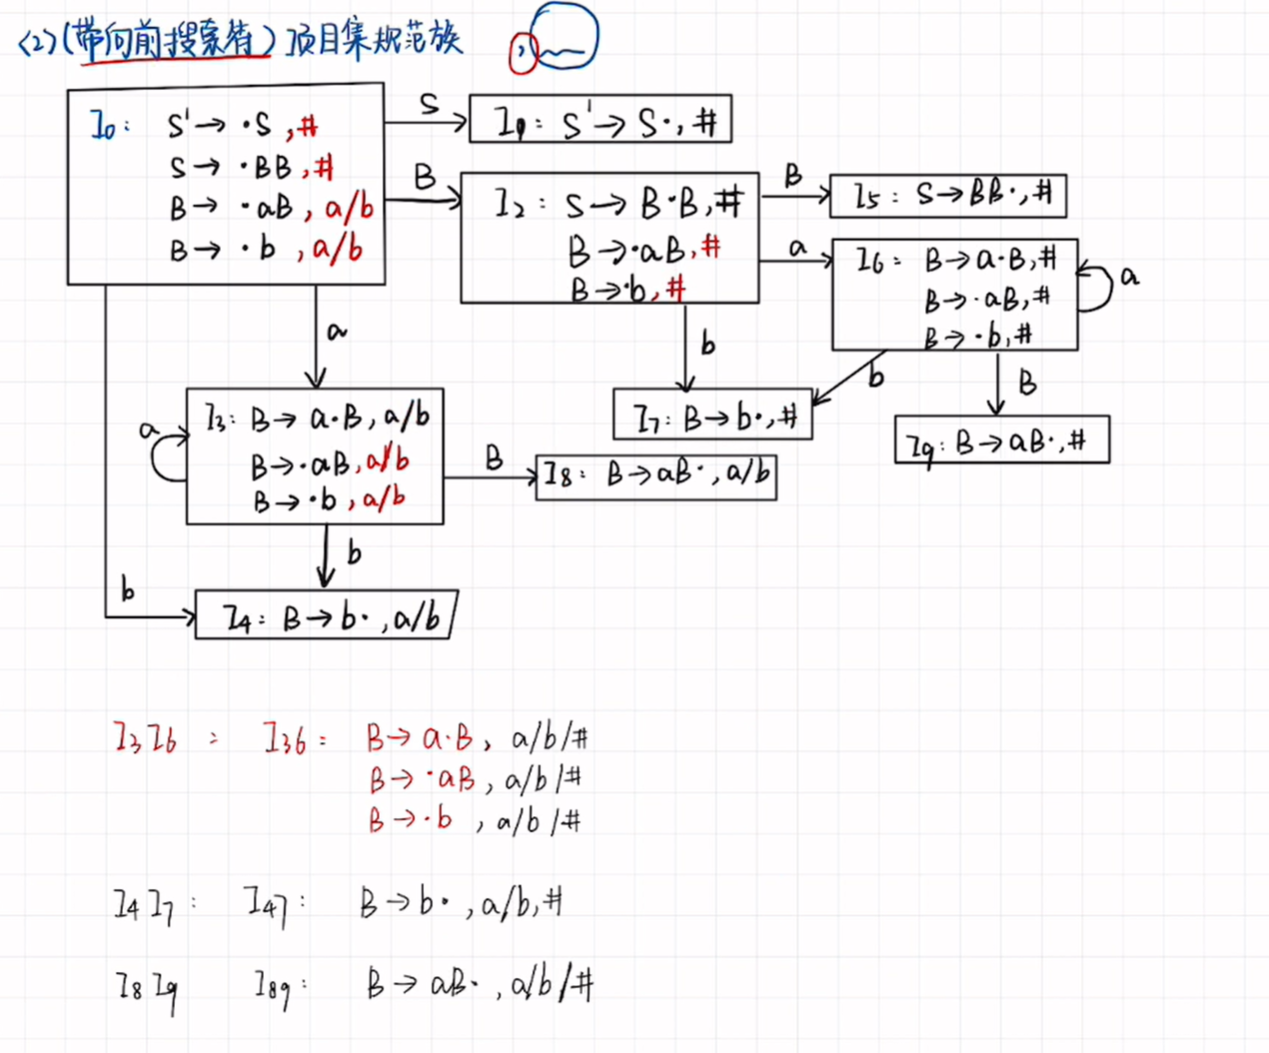 <2>(带向前搜索符)项目集规范族
,
I0: S'→·S,#
S→·BB,#
B→·aB,a/b
B→·b,a/b
S
I1: S'→S·,#
B
I2: S→B·B,#
B→·aB,#
B→·b,#
B
I5: S→BB·,#
a
I6: B→a·B,#
B→·aB,#
B→·b,#
a
a
b
b
B
I3: B→a·B,a/b
B→·aB,a/b
B→·b,a/b
a
I7: B→b·,#
I9: B→aB·,#
B
I8: B→aB·,a/b
b
b
I4: B→b·,a/b
I3I6: I36: B→a·B,a/b/#
B→·aB,a/b/#
B→·b,a/b/#
I4I7: I47: B→b·,a/b,#
I8I9 I89: B→aB·,a/b/#